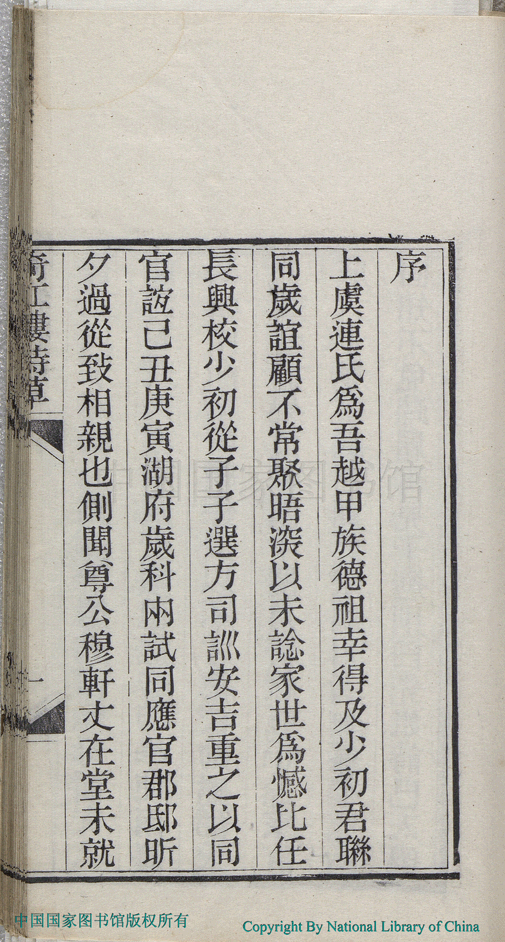 序
上虞連氏爲吾越甲族德祖幸得及少初君聯
同歲誼顧不常聚晤深以未諗家世爲憾比任
長興校少初從子子選方司訓安吉重之以同
官誼己丑庚寅湖府歲科兩試同應官郡邸昕
夕過從致相親也側聞尊公穆軒丈在堂未就
倚江樓詩草
一
中国国家图书馆
中国国家图书馆版权所有
Copyright By National Library of China